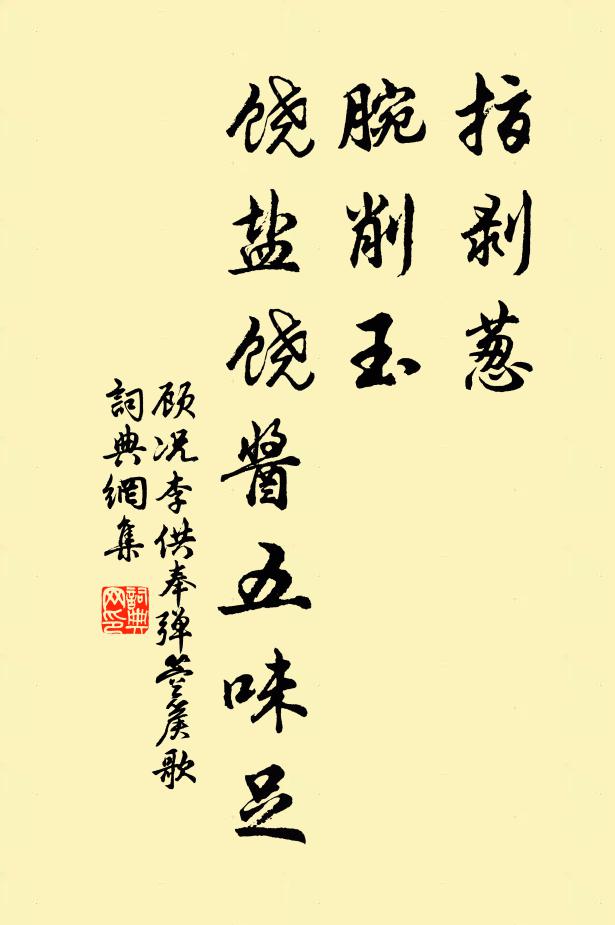 指剥葱
腕削玉
饶盐饶醬五味足
顾况李供奉弹箜篌歌
詞典網集
詞典网印